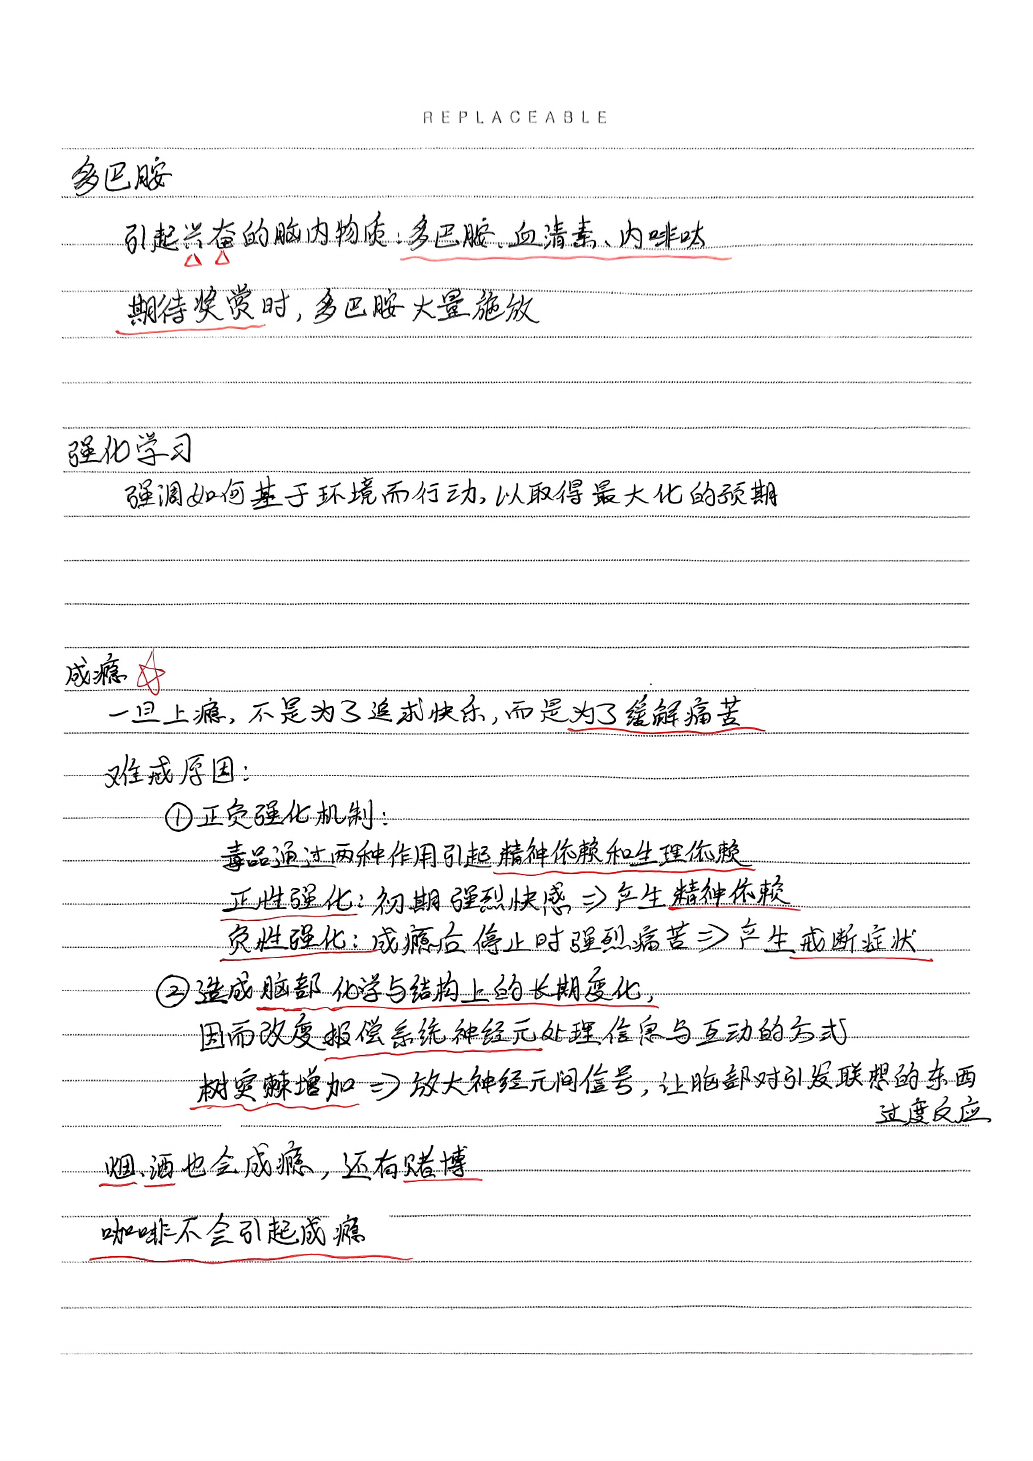 REPLACEABLE
多巴胺
引起兴奋的脑内物质:多巴胺、血清素、内啡呔
期待奖赏时,多巴胺大量施放
强化学习
强调如何基于环境而行动,以取得最大化的预期
成瘾
一旦上瘾,不是为了追求快乐,而是为了缓解痛苦
难戒原因:
①正负强化机制:
毒品通过两种作用引起精神依赖和生理依赖
正性强化:初期强烈快感⇒产生精神依赖
负性强化:成瘾后停止时强烈痛苦⇒产生戒断症状
②造成脑部化学与结构上的长期变化,
因而改变报偿系统神经元处理信息与互动的方式
树突棘增加⇒放大神经元间信号,让脑部对引发联想的东西
过度反应
烟、酒也会成瘾,还有赌博
咖啡不会引起成瘾